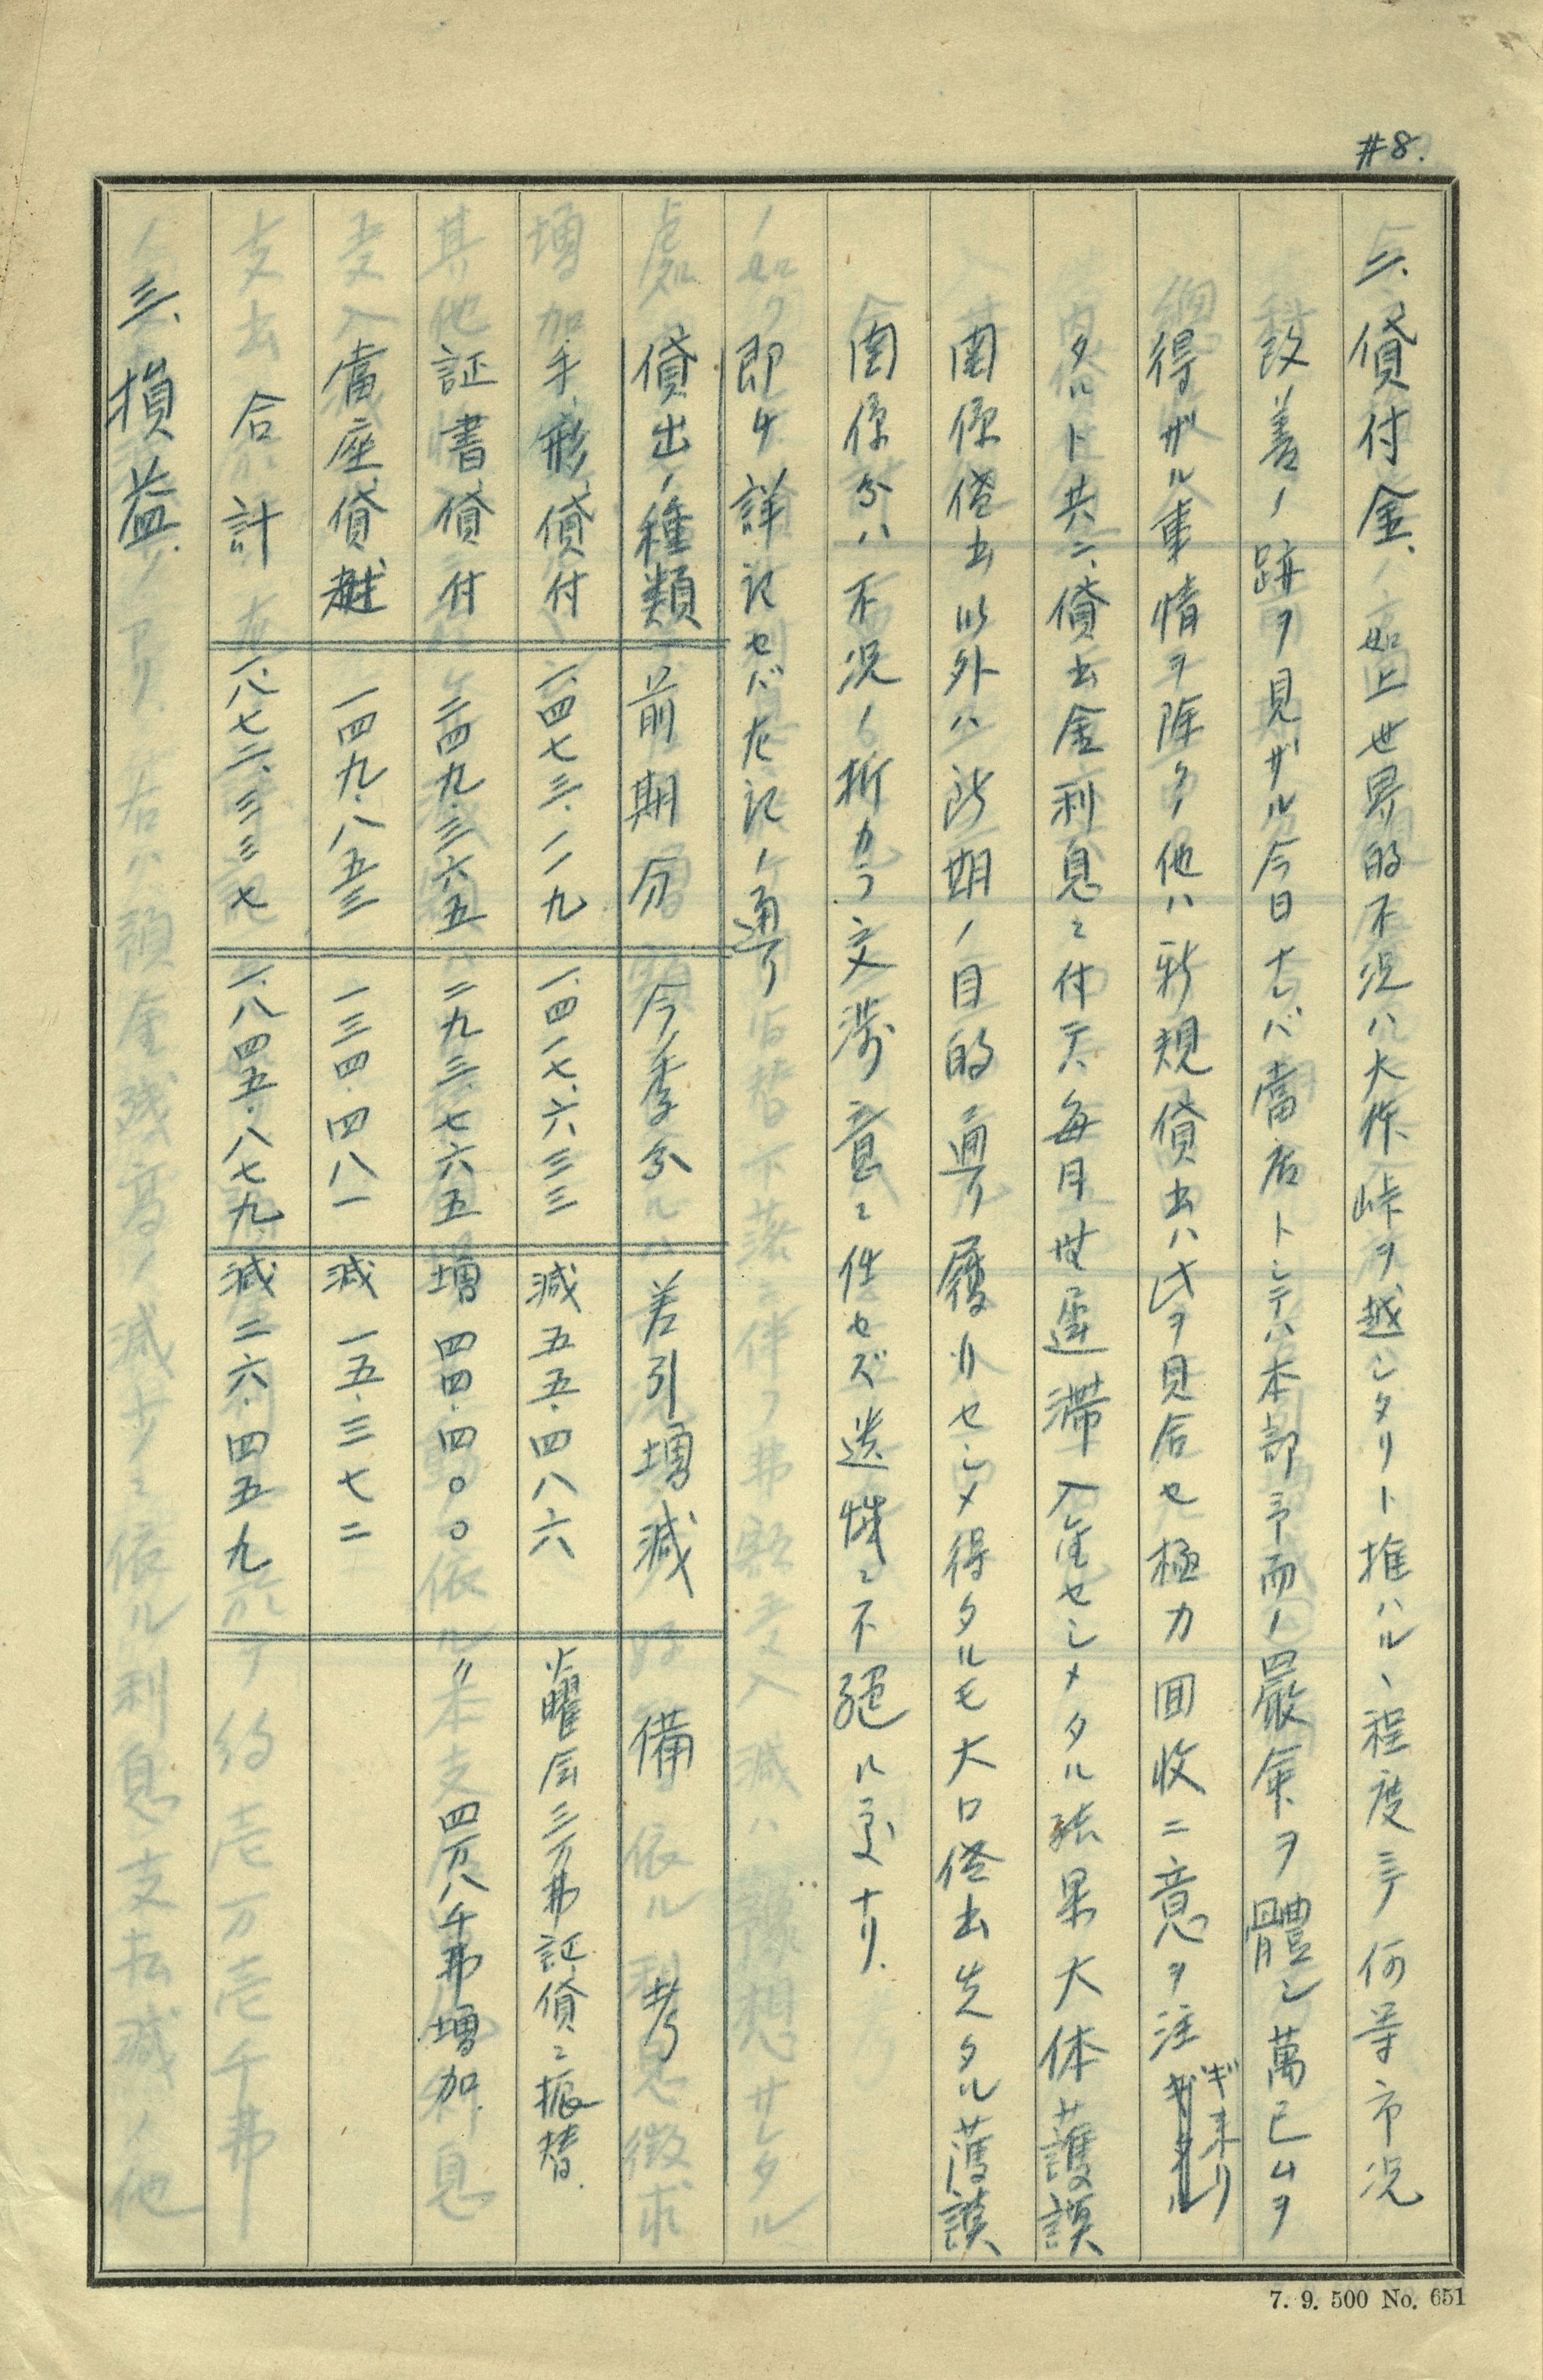 #8.
二、貸付金、如上世界的不況ハ大体峠ヲ越シタリト推ハル、程度ニテ何等市況
改善ノ跡ヲ見ザル今日ナレバ當店トシテハ本部ヨリ而ノ嚴命ヲ體シ萬已ムヲ
得ザル事情ヲ除クノ他ハ新規貸出ハ此ヲ見合セ極力回收ニ意ヲ注ギ来リ
タルト共ニ、貸出金利息ニ付テハ毎月無遅滞入金セシメタル結果大体護謨
関係貸出以外ハ所期ノ目的通リ履行セシメ得タルモ大口貸出先タル護謨
関係分ハ不況ノ折カラ交渉意ニ任セズ遺憾ニ不絶ル次ナリ.
即チ詳記セバ左記ノ通リ
貸出ノ種類 前期分 今季分 差引増減 備考
手形貸付 一、四七三.一一九 一.四一七.六三三 減 五五.四八六 火曜会三万弗証貸ニ振替.
証書貸付 二四九.三六五 二九三.七六五 増 四四.四〇〇 〃 四万八千弗増加.
當座貸越 一四九.八五三 一三四.四八一 減 一五.三七二
合計 一.八七二.三三七 一.八四五.八七九 減 二六.四五九
三、損益.
7. 9. 500 No. 651